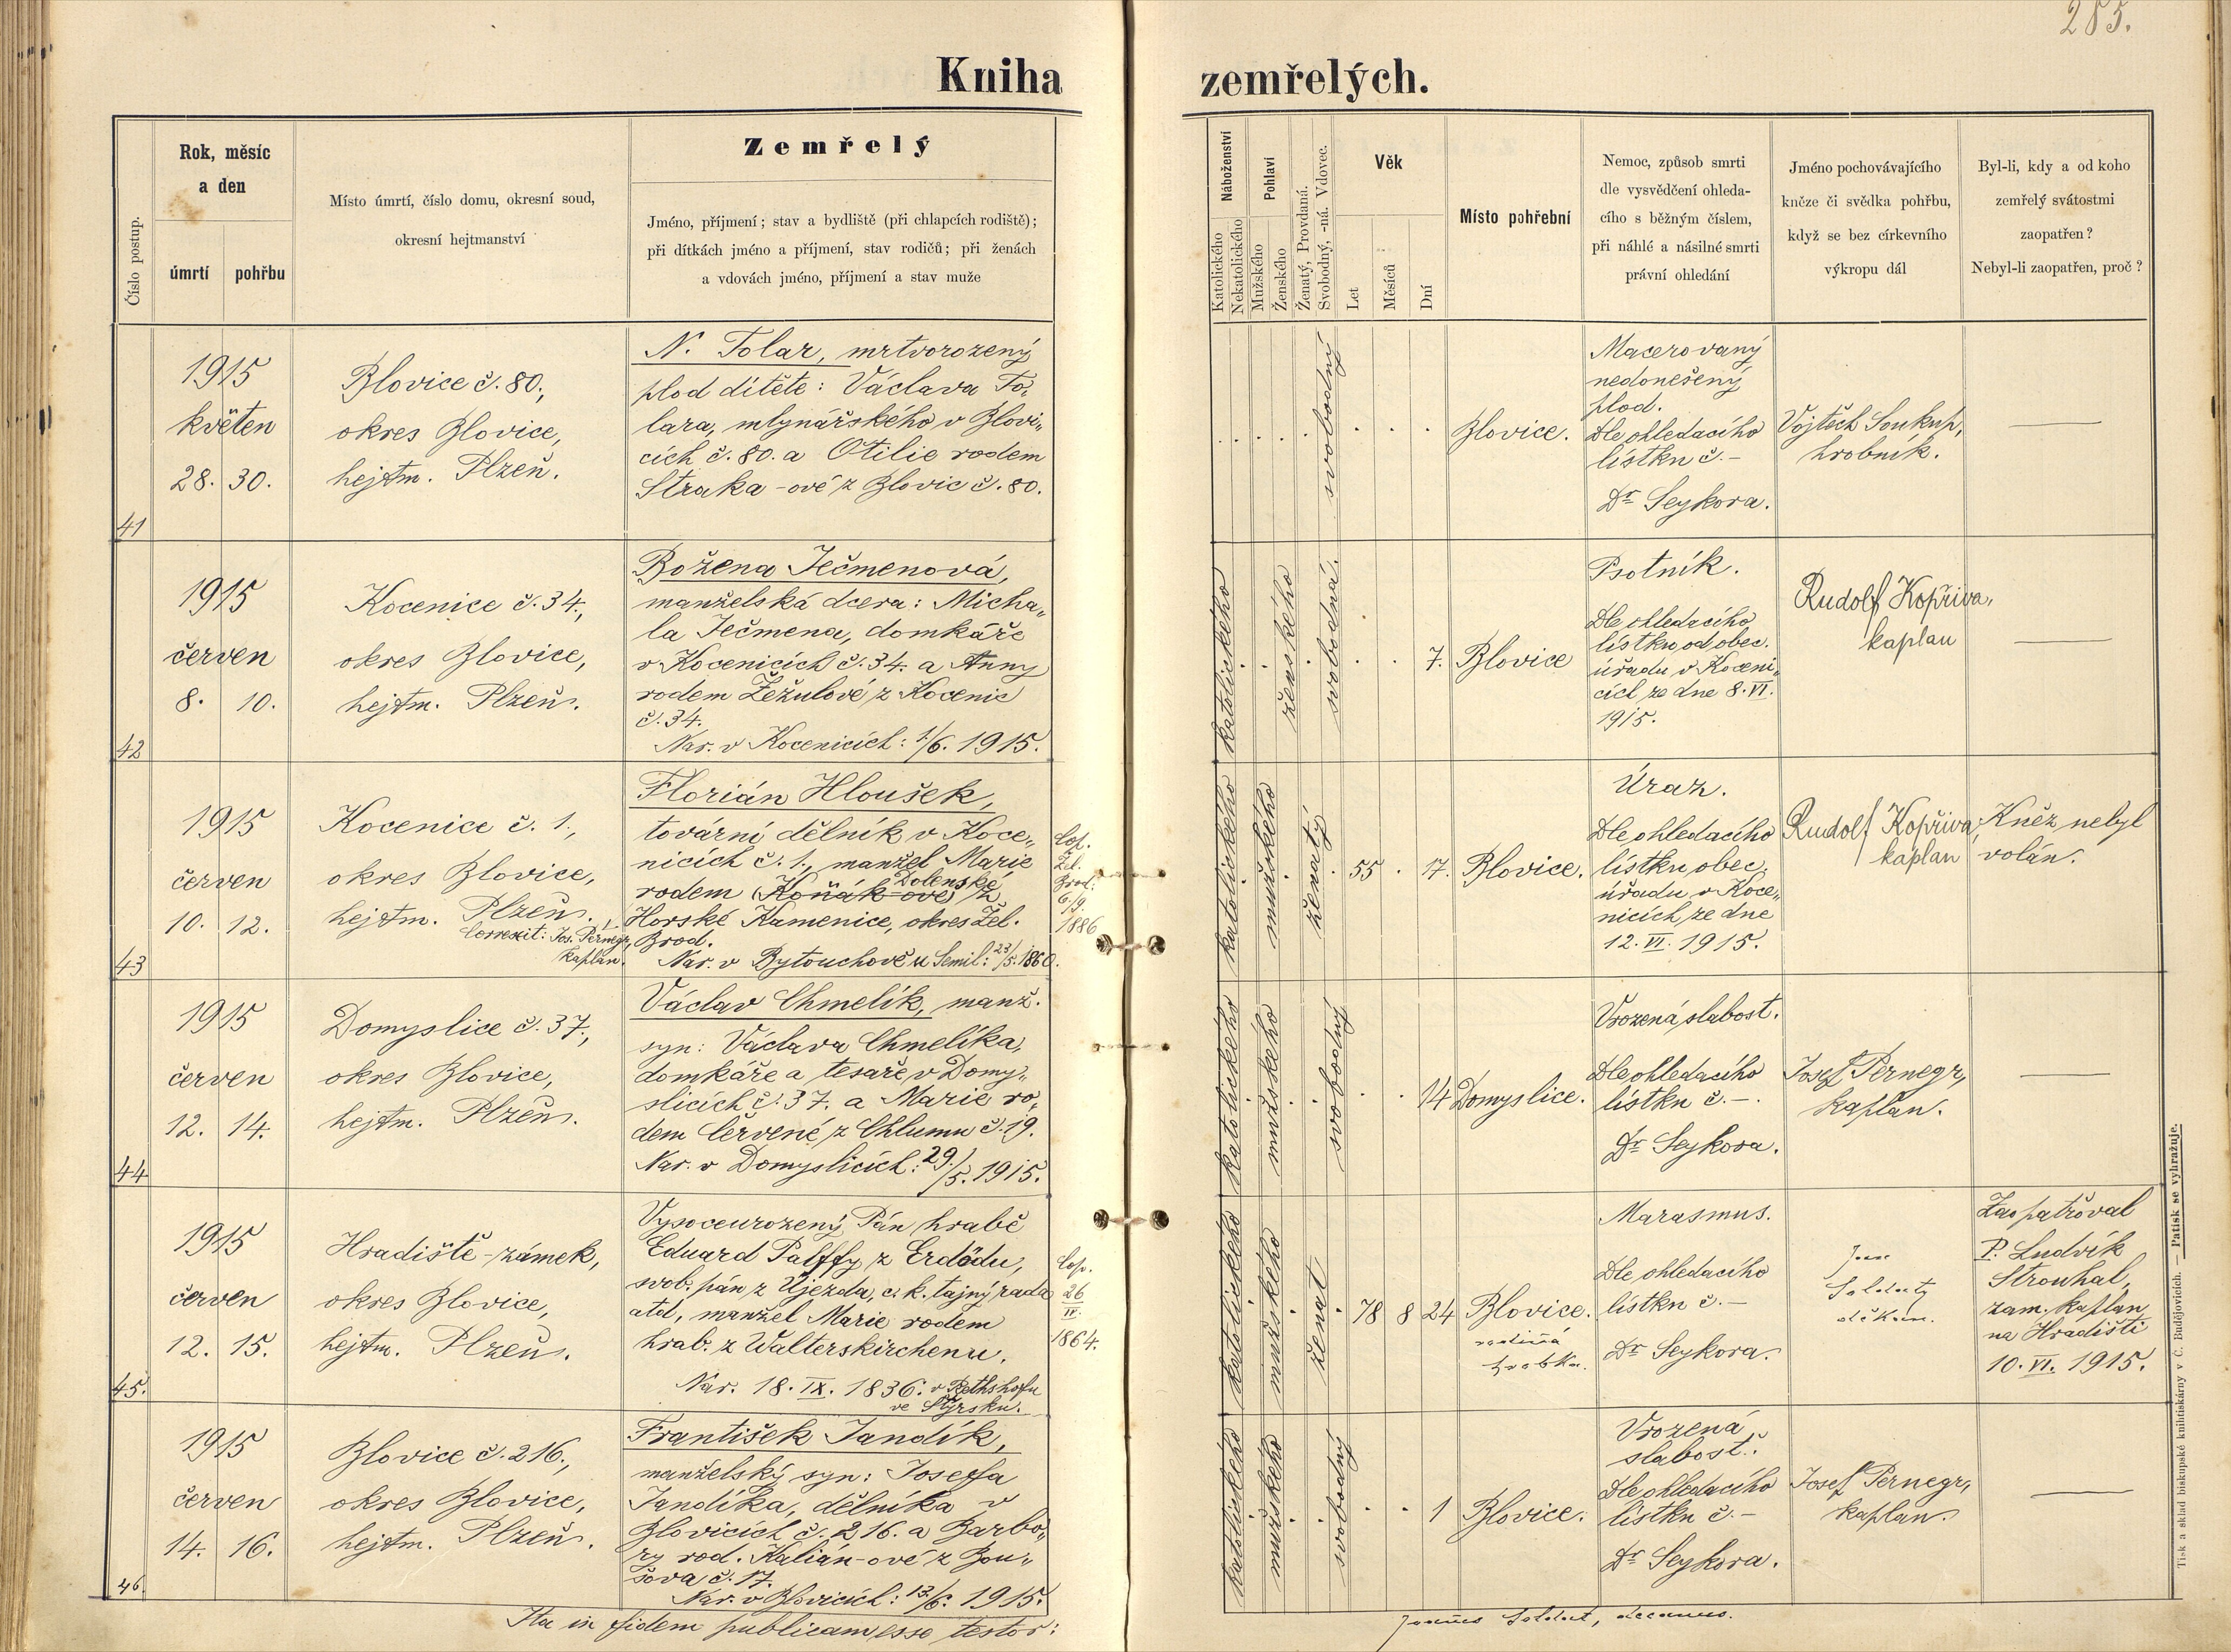 285.
Kniha zemřelých.
Číslo postup.
Rok, měsíc
a den
úmrtí
pohřbu
Místo úmrtí, číslo domu, okresní soud,
okresní hejtmanství
Zemřelý
Jméno, příjmení; stav a bydliště (při chlapcích rodiště);
při dítkách jméno a příjmení, stav rodičů; při ženách
a vdovách jméno, příjmení a stav muže
Náboženství
Katolického
Nekatolického
Pohlaví
Mužského
Ženského
Ženatý, Provdaná.
Svobodný, -ná. Vdovec.
Věk
Let
Měsíců
Dní
Místo pohřební
Nemoc, způsob smrti
dle vysvědčení ohleda-
cího s běžným číslem,
při náhlé a násilné smrti
právní ohledání
Jméno pochovávajícího
kněze či svědka pohřbu,
když se bez církevního
výkropu dál
Byl-li, kdy a od koho
zemřelý svátostmi
zaopatřen?
Nebyl-li zaopatřen, proč?
41
1915
květen
28. 30.
Blovice č. 80.,
okres Blovice,
hejtm. Plzeň.
N. Tolar, mrtvorozený
plod dítěte: Václava To-
lara, mlynářského v Blovi-
cích č. 80. a Otilie rodem
Straka-ové z Blovic č. 80.
svobodný
Blovice.
Macerovaný
nedonešený
plod.
Dle ohledacího
lístku č. –
Dr Seykora.
Vojtěch Soukup,
hrobník.
—
42
1915
červen
8. 10.
Kocenice č. 34.,
okres Blovice,
hejtm. Plzeň.
Božena Ječmenová,
manželská dcera: Micha-
la Ječmena, domkáře
v Kocenicích č. 34. a Anny
rodem Žežulové z Kocenic
č. 34.
Nar. v Kocenicích: 1./6. 1915.
katolického
ženského
svobodná.
7.
Blovice
Psotník.
Dle ohledacího
lístku od obec.
úřadu v Koceni-
cích ze dne 8. VI.
1915.
Rudolf Kopřiva,
kaplan
—
43
1915
červen
10. 12.
Kocenice č. 1.,
okres Blovice,
hejtm. Plzeň.
Correxit: Jos. Pernegr,
kaplan.
Florián Hloušek,
tovární dělník v Koce-
nicích č. 1., manžel Marie
Dolenské
rodem (Koňák-ové) z
Horské Kamenice, okres Žel.
Brod.
Nar. v Bytouchově u Semil: 23/5. 1860.
Cop.
Žel.
Brod:
6/9.
1886
katolického
mužského
ženatý
55 . 17.
Blovice.
Úraz.
Dle ohledacího
lístku obec.
úřadu v Koce-
nicích ze dne
12. VI. 1915.
Rudolf Kopřiva,
kaplan
Kněz nebyl
volán.
44
1915
červen
12. 14.
Domyslice č. 37.,
okres Blovice,
hejtm. Plzeň.
Václav Chmelík, manž.
syn: Václava Chmelíka,
domkáře a tesaře v Domy-
slicích č. 37. a Marie ro-
dem Červené z Chlumu č. 19.
Nar. v Domyslicích: 29./5. 1915.
katolického
mužského
svobodný
14
Domyslice.
Vrozená slabost.
Dle ohledacího
lístku č. –.
Dr Seykora.
Josef Pernegr,
kaplan.
—
45.
1915
červen
12. 15.
Hradiště-zámek,
okres Blovice,
hejtm. Plzeň.
Vysoceurozený Pán hrabě
Eduard Palffy z Erdödu,
svob. pán z Újezda, c. k. tajný rada
atd, manžel Marie rodem
hrab. z Walterskirchenu.
Nar. 18. IX. 1836. v
ve Štýrsku.
Cop.
26
IV.
1864.
katolického
mužského
ženat
78 8 24
Blovice.
rodinná
hrobka.
Marasmus.
Dle ohledacího
lístku č. –
Dr Seykora.
Jan
Soldát
děkan.
Zaopatřoval
P. Ludvík
Strouhal,
zam. kaplan
na Hradišti
10. VI. 1915.
46.
1915
červen
14. 16.
Blovice č. 216.,
okres Blovice,
hejtm. Plzeň.
František Jandík,
manželský syn: Josefa
Jandíka, dělníka v
Blovicích č. 216. a Barbo-
ry rod. Kalián-ové z Bou-
šova č. 17.
Nar. v Blovicích: 13./6. 1915.
katolického
mužského
svobodný
1
Blovice.
Vrozená
slabost.
Dle ohledacího
lístku č. –
Dr Seykora.
Josef Pernegr,
kaplan.
—
Ita in fidem publicam esse testor:
Joannes Soldát, decanus.
Tisk a sklad biskupské knihtiskárny v Č. Budějovicích. — Patisk se vyhražuje.